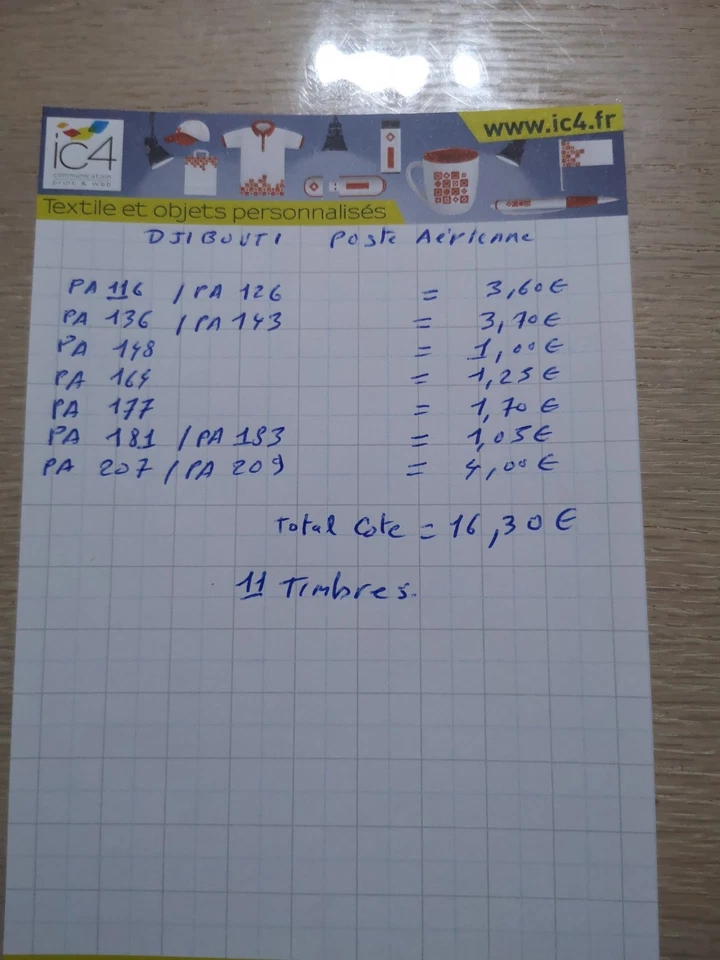 ic4
communication
print & web
www.ic4.fr
Textile et objets personnalisés
DJIBOUTI Poste Aérienne
PA 116 / PA 126 = 3,60 €
PA 136 / PA 143 = 3,70 €
PA 148 = 1,00 €
PA 164 = 1,25 €
PA 177 = 1,70 €
PA 181 / PA 193 = 1,05 €
PA 207 / PA 209 = 4,00 €
Total Cote = 16,30 €
11 Timbres.